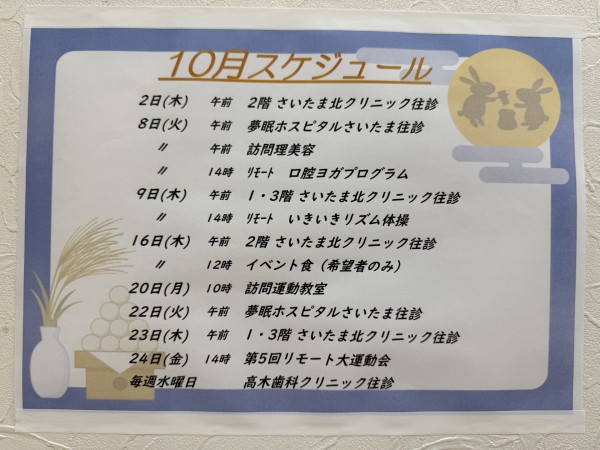 10月スケジュール
2日(木) 午前 2階 さいたま北クリニック往診
8日(火) 午前 夢眠ホスピタルさいたま往診
〃 午前 訪問理美容
〃 14時 ﾘﾓｰﾄ 口腔ヨガプログラム
9日(木) 午前 1・3階 さいたま北クリニック往診
〃 14時 ﾘﾓｰﾄ いきいきリズム体操
16日(木) 午前 2階 さいたま北クリニック往診
〃 12時 イベント食（希望者のみ）
20日(月) 10時 訪問運動教室
22日(火) 午前 夢眠ホスピタルさいたま往診
23日(木) 午前 1・3階 さいたま北クリニック往診
24日(金) 14時 第5回リモート大運動会
毎週水曜日 高木歯科クリニック往診